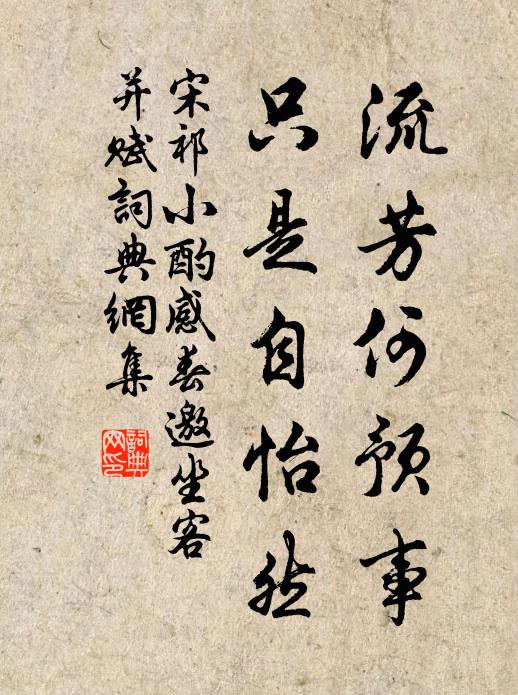 流芳何預事
只是自怡然
宋祁小酌感春邀坐客
并賦詞典網集
詞典網印